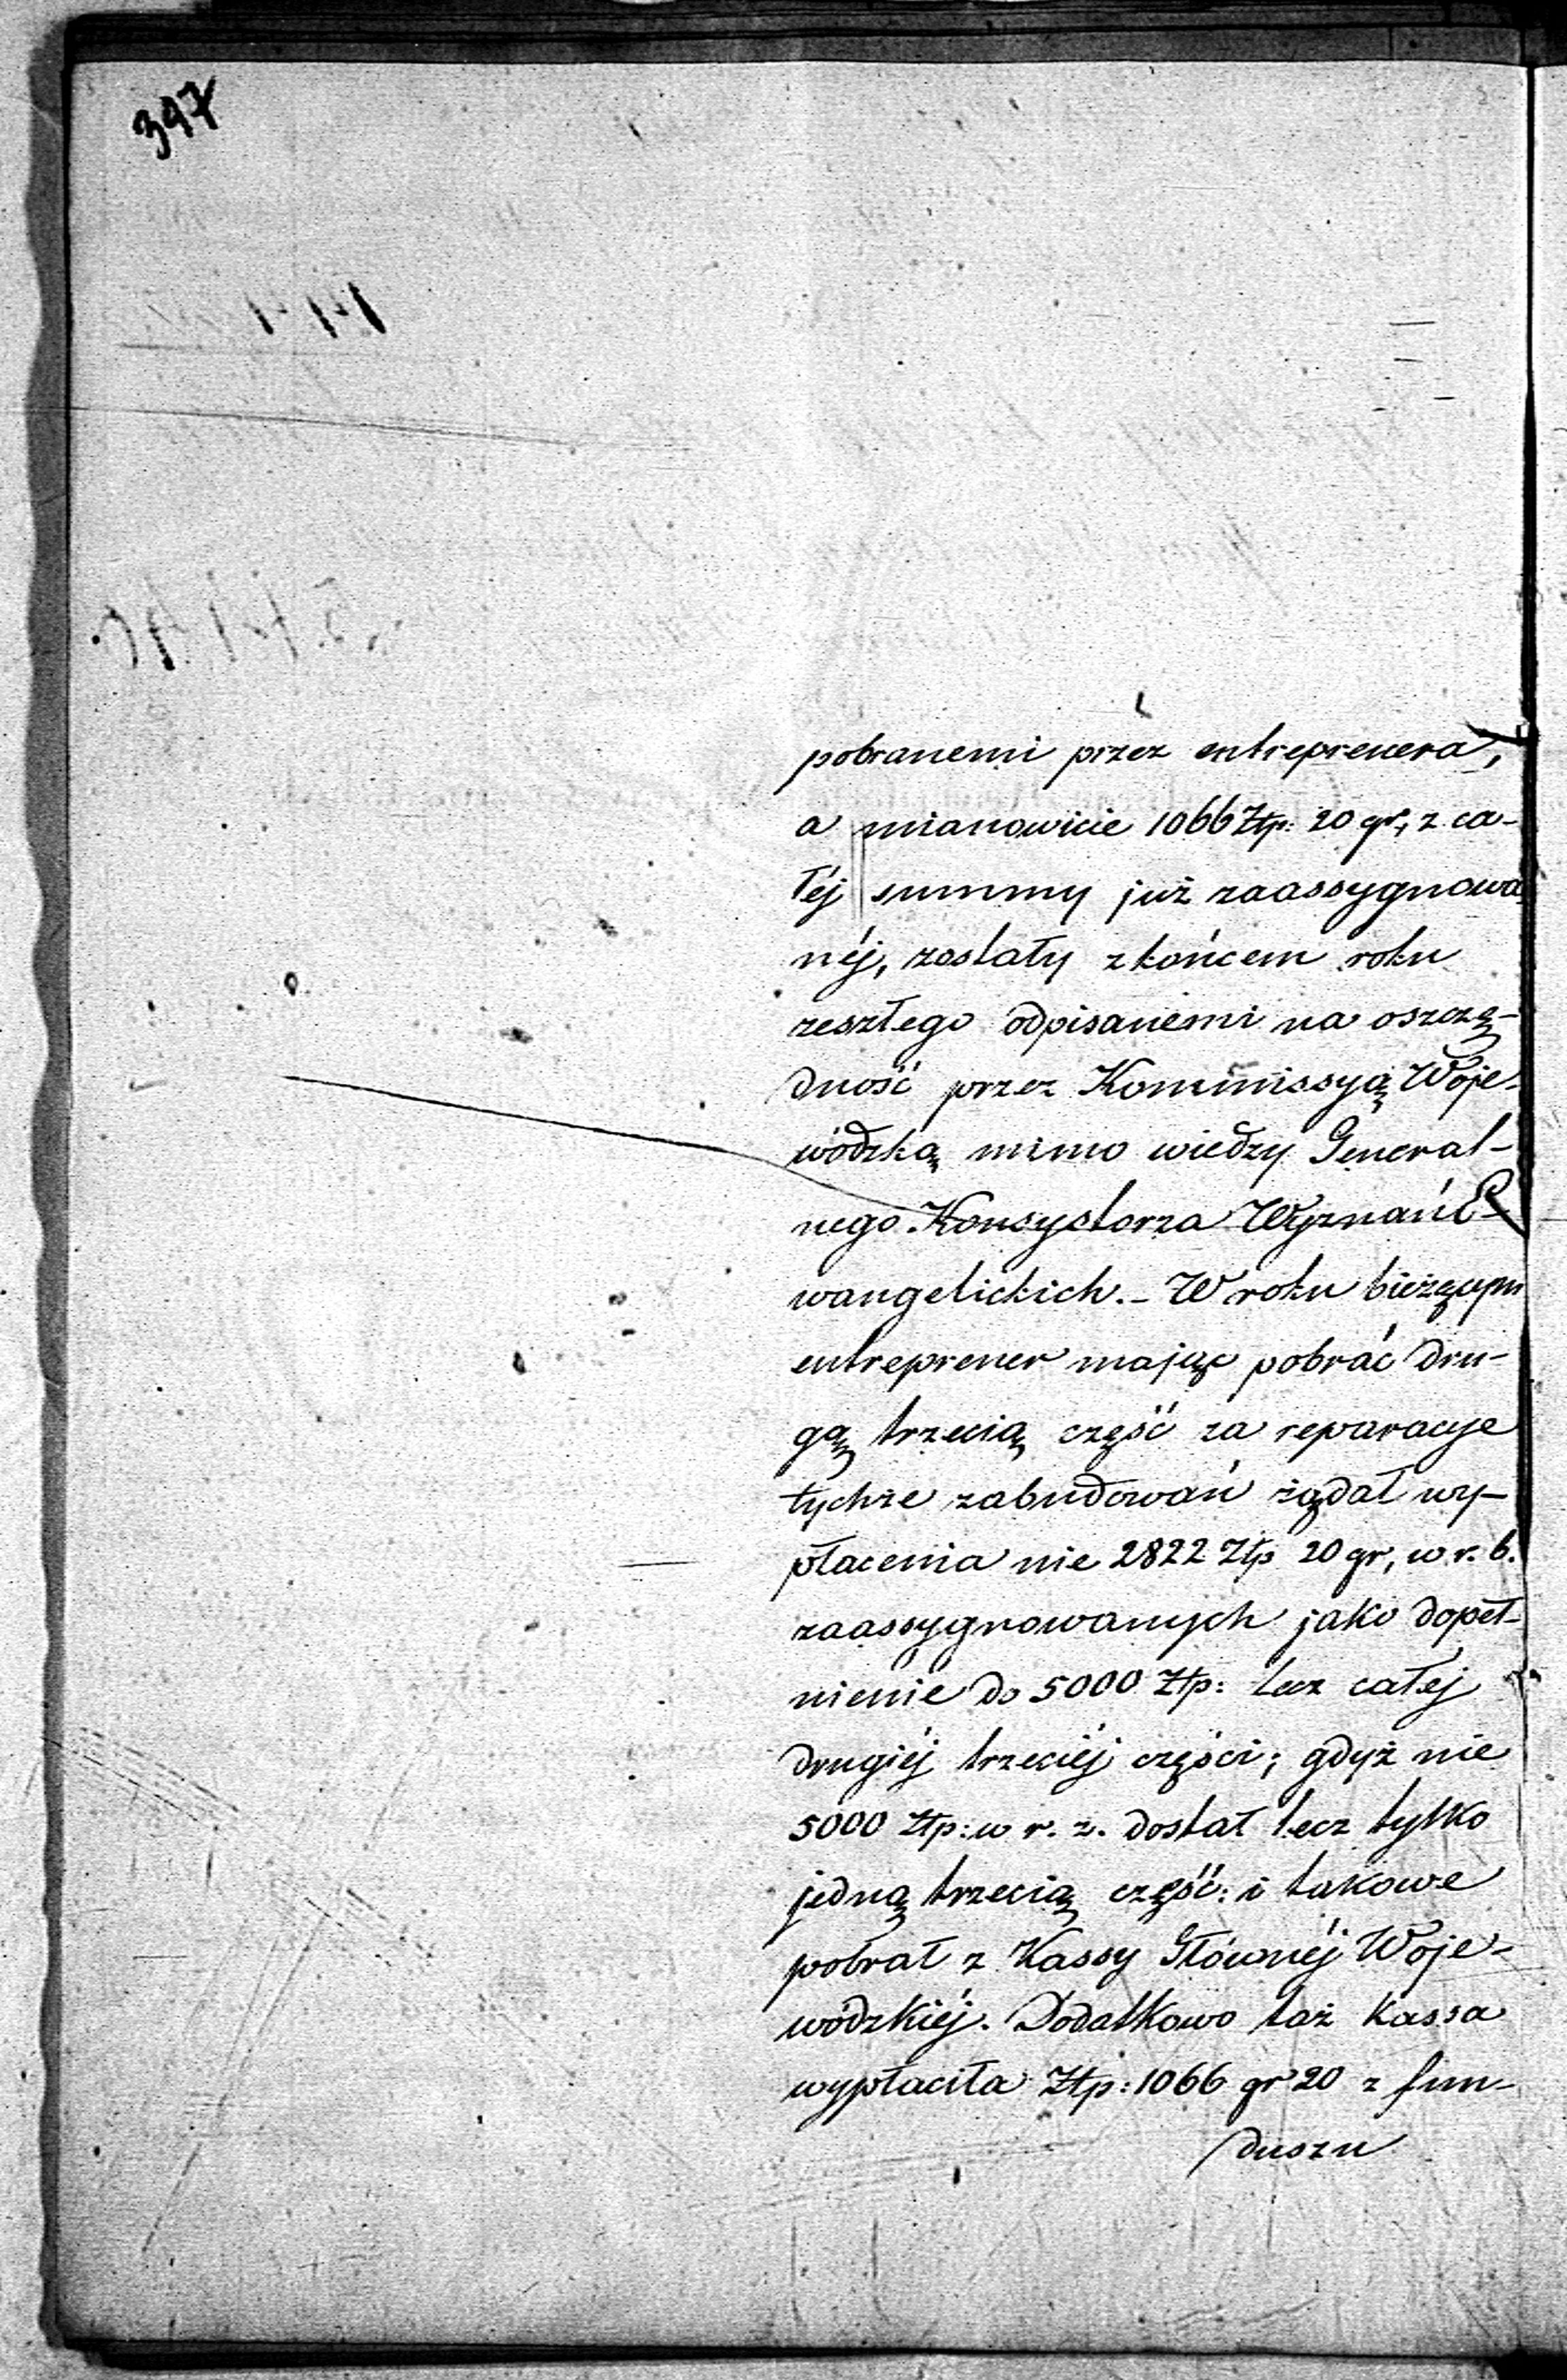 397
pobranemi przez entreprenera,
a mianowicie 1066 Złp: 20 gr, z ca-
łéj summy już zaassygnowa
néj, zostały z końcem roku
zeszłego odpisanemi na oszczę-
dność przez Kommissyą Woje-
wódzką mimo wiedzy General-
nego Konsystorza Wyznań E-
wangelickich. – W roku bieżącym
entreprener mając pobrać dru-
gą trzecią część za reparacye
tychże zabudowań żądał wy-
płacenia nie 2822 Złp 20 gr, w r. b.
zaassygnowanych jako dopeł-
nienie do 5000 Złp: lecz całej
drugiéj trzeciéj części; gdyż nie
5000 Złp: w r. z. dostał lecz tylko
jedną trzecią część: i takowe
pobrał z Kassy Głównéj Woje-
wódzkiéj. Dodatkowo taż Kassa
wypłaciła Złp: 1066 gr 20 z fun-
duszu